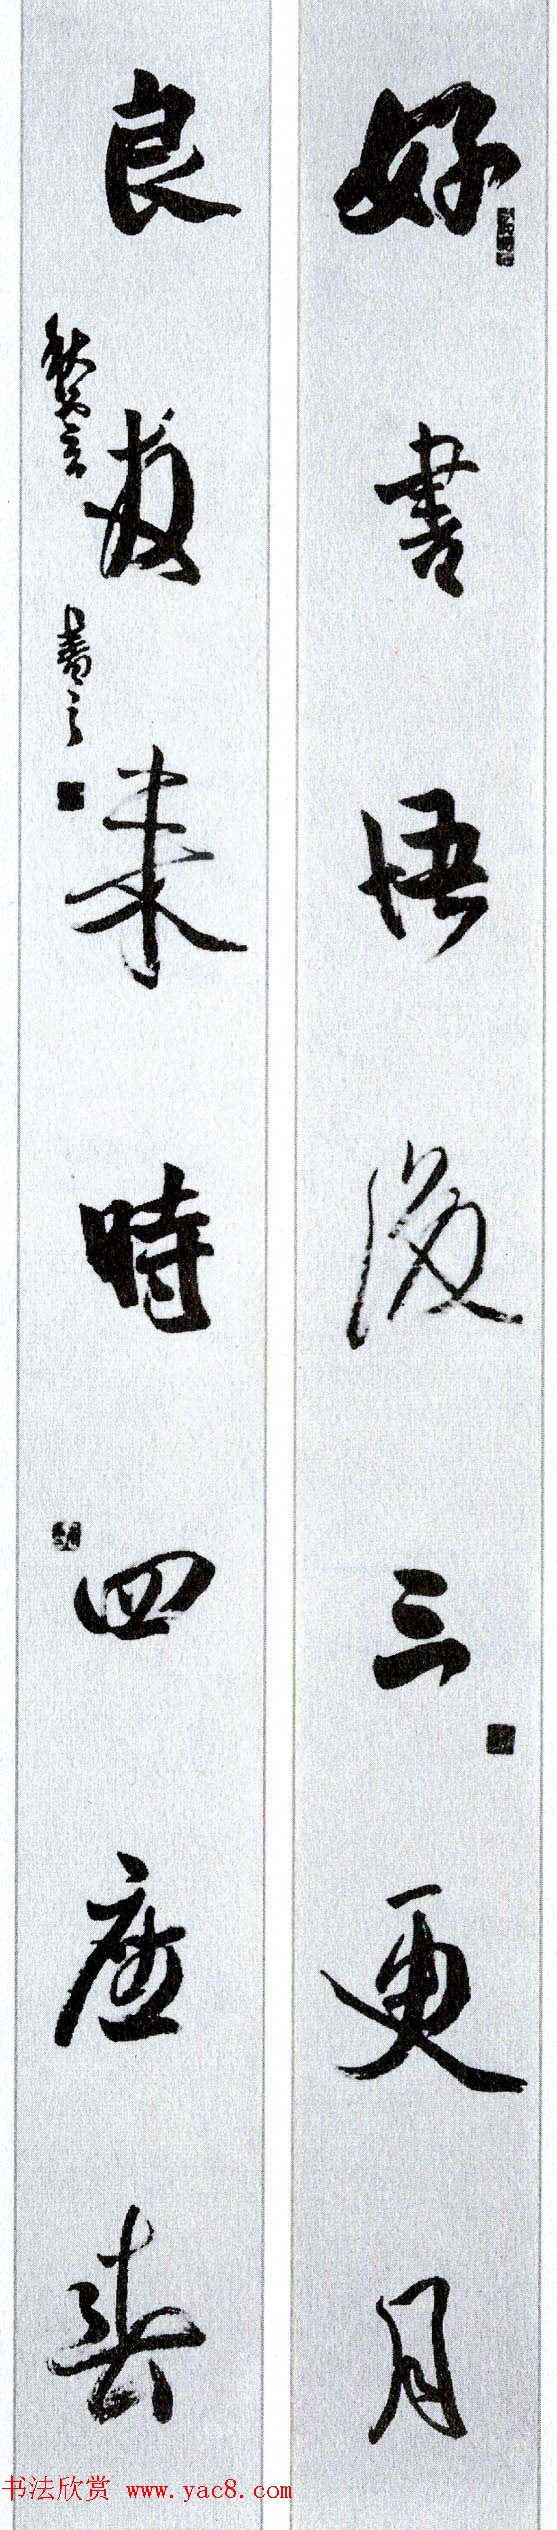 好書悟後三更月
良友來時四座春
书法欣赏 www.yac8.com